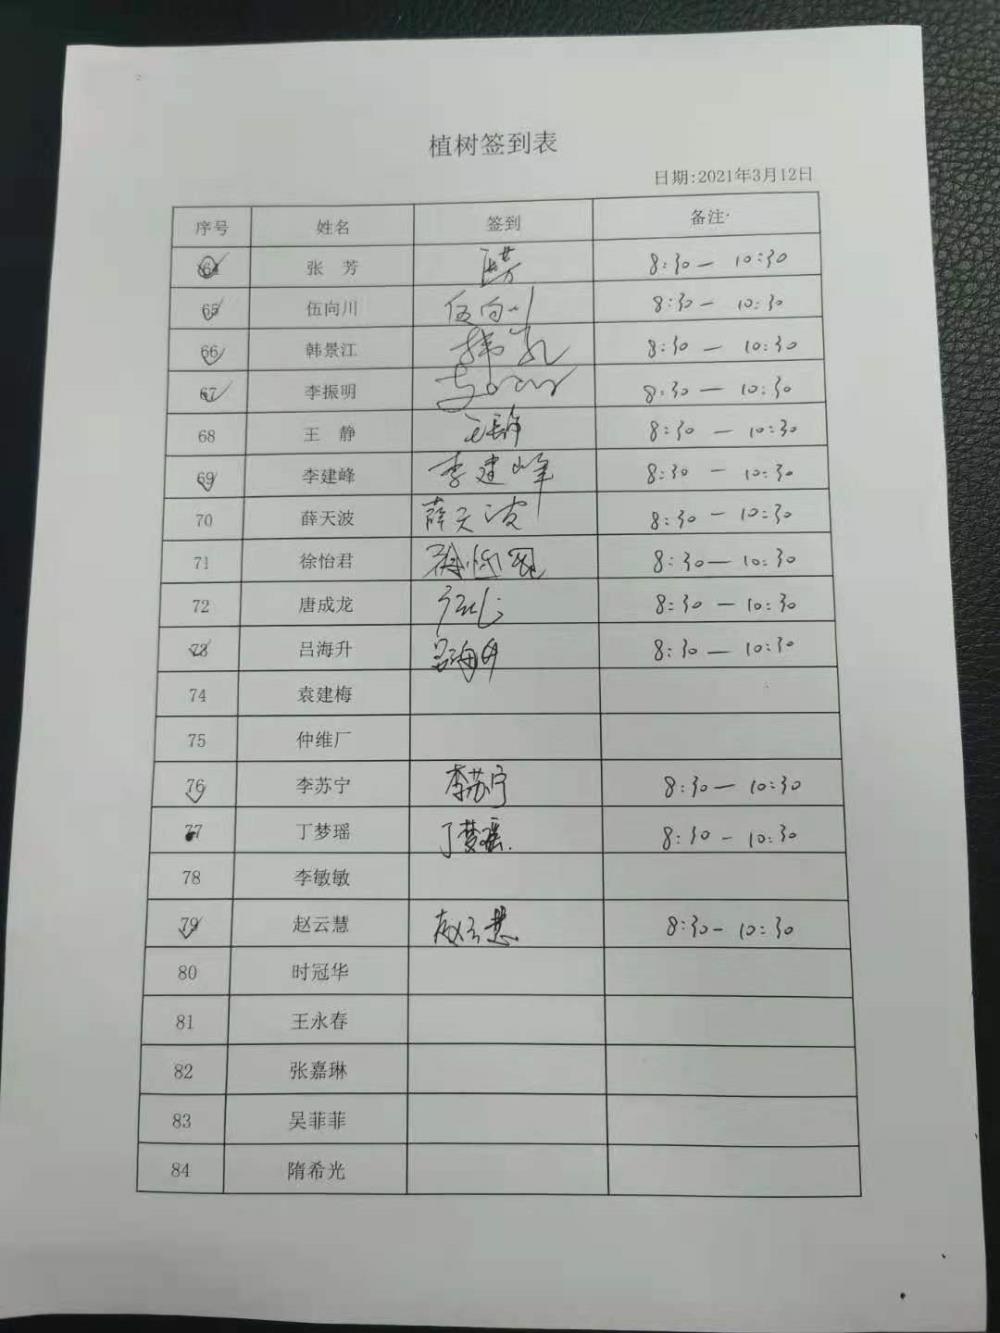 植树签到表
日期:2021年3月12日
序号 姓名 签到 备注
64 张 芳 张芳 8:30 — 10:30
65 伍向川 伍向川 8:30 — 10:30
66 韩景江 8:30 — 10:30
67 李振明 8:30 — 10:30
68 王 静 王静 8:30 — 10:30
69 李建峰 李建峰 8:30 — 10:30
70 薛天波 薛天波 8:30 — 10:30
71 徐怡君 徐怡君 8:30 — 10:30
72 唐成龙 8:30 — 10:30
73 吕海升 吕海升 8:30 — 10:30
74 袁建梅
75 仲维厂
76 李苏宁 李苏宁 8:30 — 10:30
77 丁梦瑶 丁梦瑶. 8:30 — 10:30
78 李敏敏
79 赵云慧 赵云慧 8:30 — 10:30
80 时冠华
81 王永春
82 张嘉琳
83 吴菲菲
84 隋希光